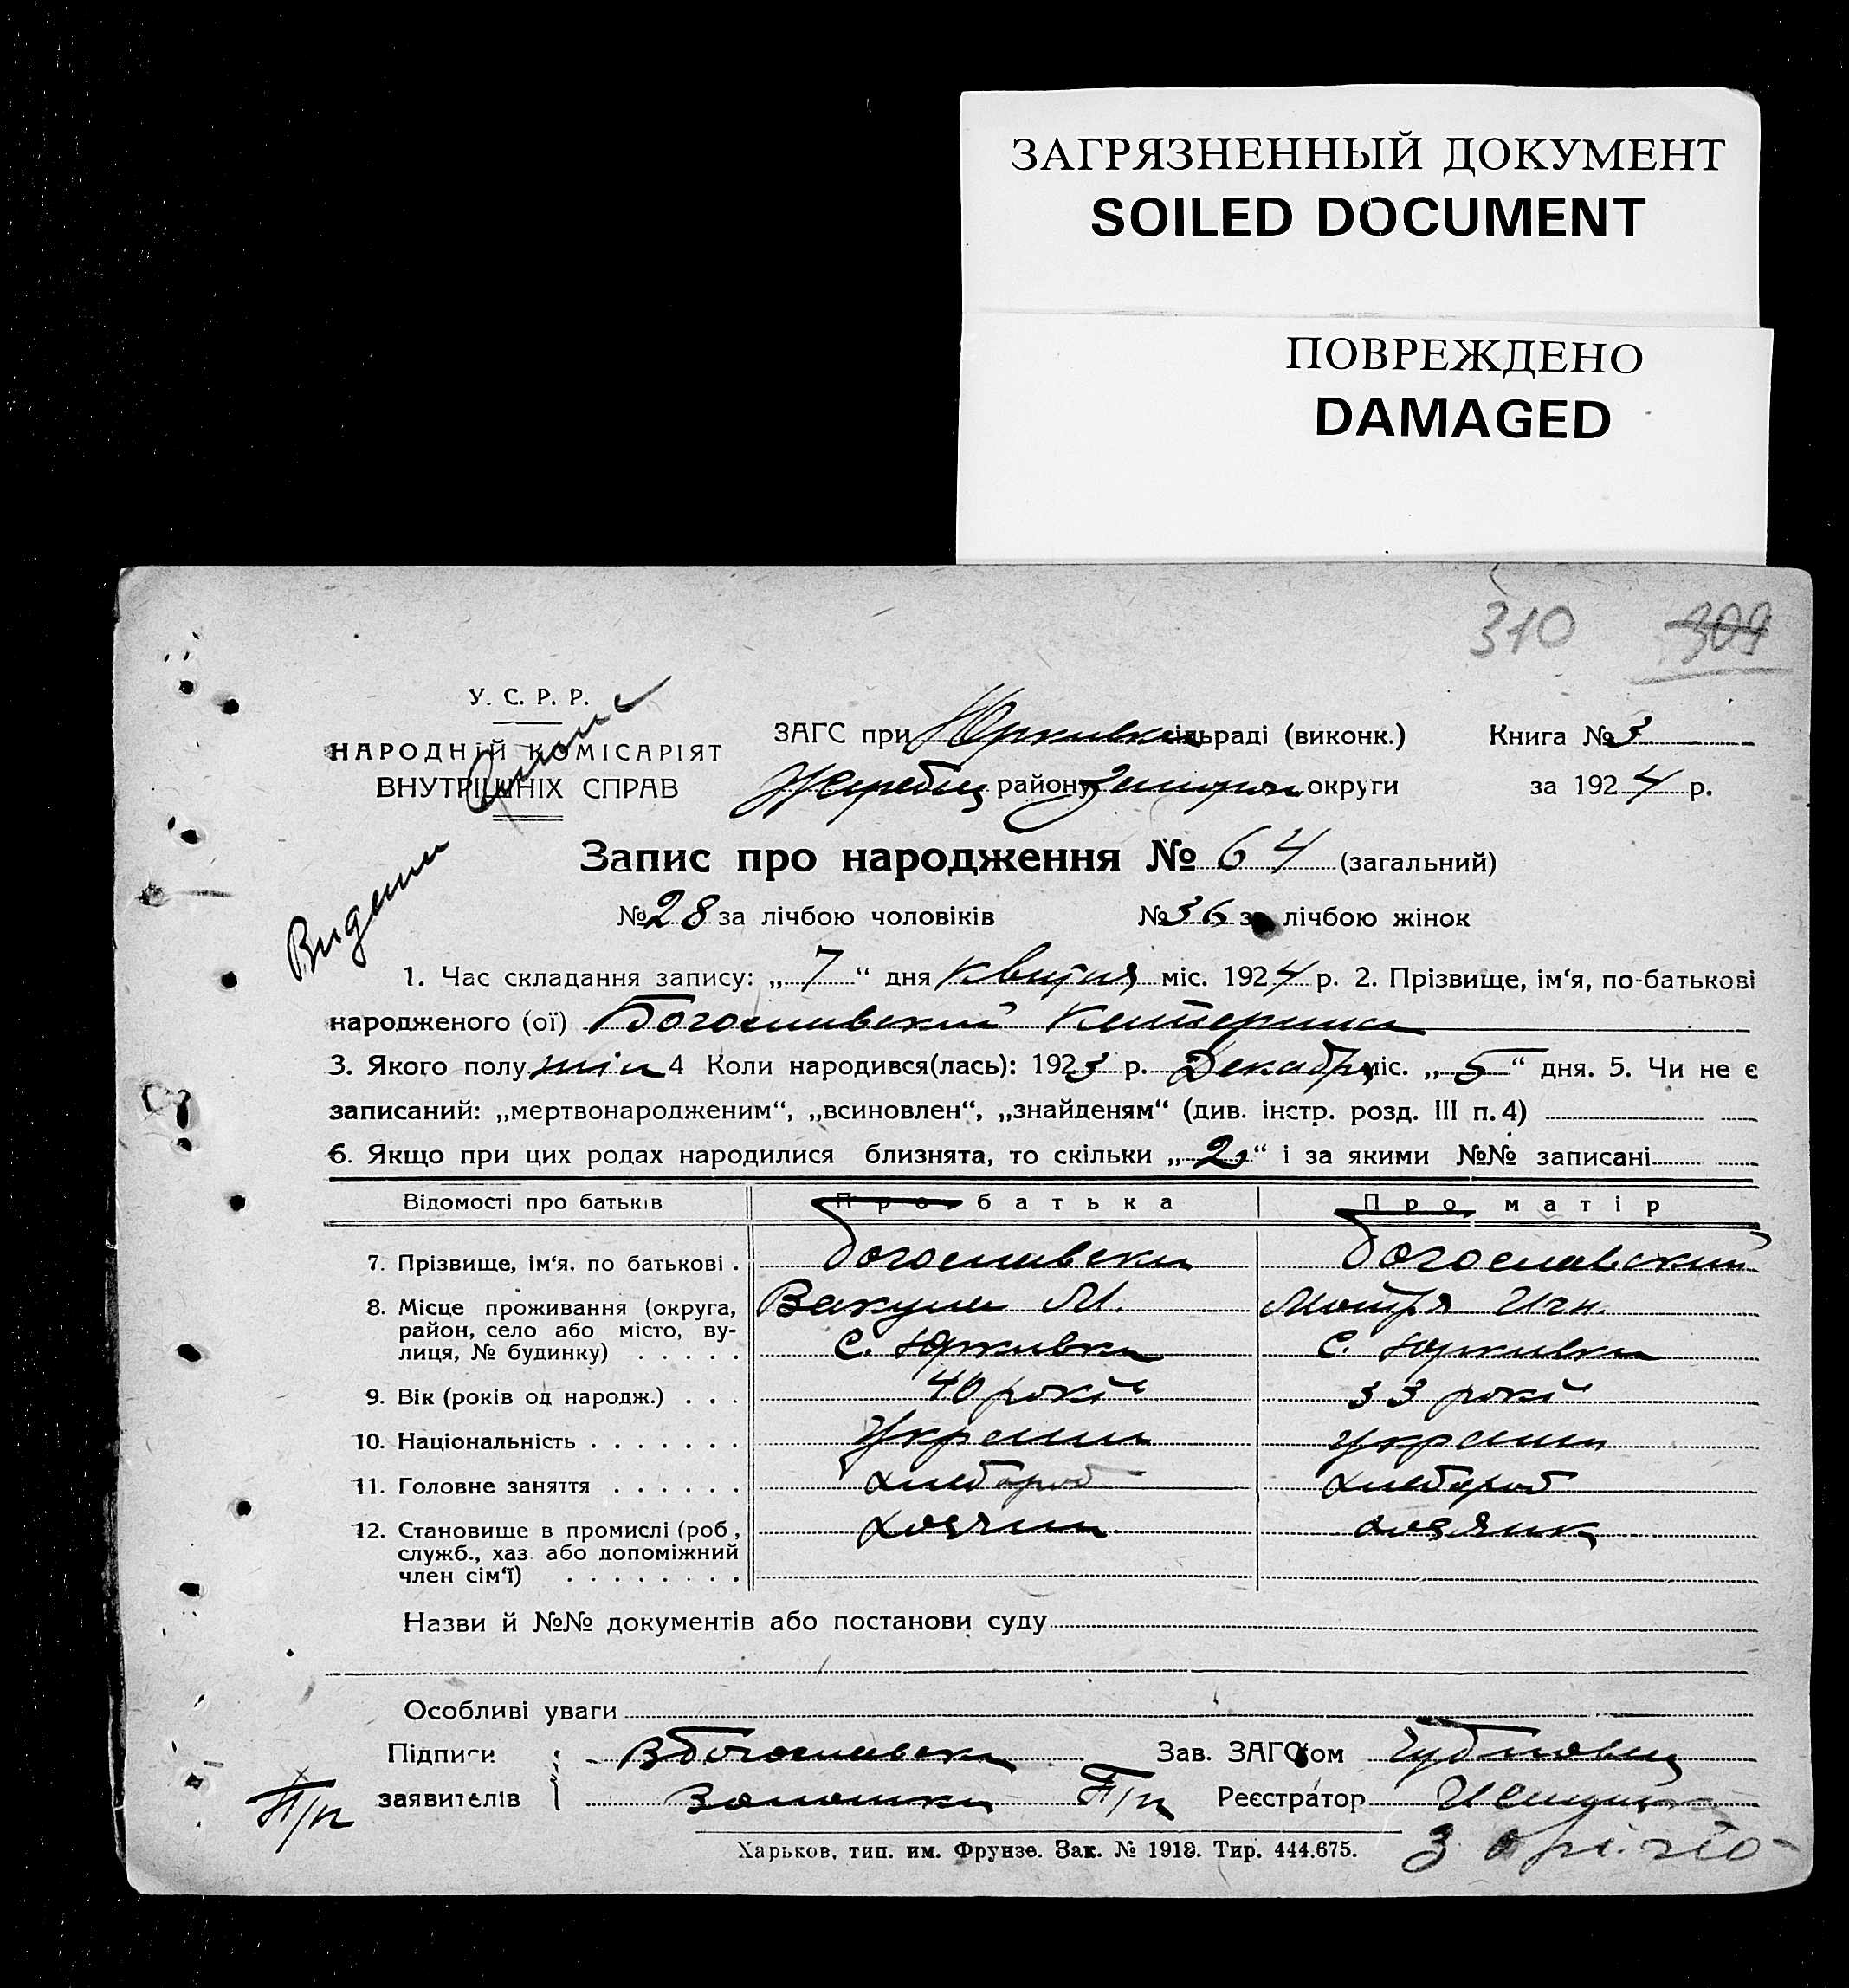 ЗАГРЯЗНЕННЫЙ ДОКУМЕНТ
SOILED DOCUMENT
ПОВРЕЖДЕНО
DAMAGED
310 309
У. С. Р. Р.
НАРОДНІЙ КОМІСАРІЯТ
ВНУТРІШНІХ СПРАВ
ЗАГС при Юркивск сільраді (виконк.) Книга № 3
Жеребец району округи за 1924 р.
Запис про народження № 64 (загальний)
№ 28 за лічбою чоловіків № 36 за лічбою жінок
1. Час складання запису: „ 7 “ дня квитня міс. 1924 р. 2. Прізвище, ім‘я, по-батькові
народженого (ої) Богославский Катерина
3. Якого полу жін 4 Коли народився(лась): 1923 р. Декабр міс. „ 5 “ дня. 5. Чи не є
записаний: „мертвонародженим“, „всиновлен“, „знайденям“ (див. інстр. розд. III п. 4)
6. Якщо при цих родах народилися близнята, то скільки „ 2 “ і за якими №№ записані
Відомості про батьків Про батька Про матір
7. Прізвище, ім‘я. по батькові . Богославски Богославский
8. Місце проживання (округа, Вакула М. Мотря Игн.
район, село або місто, ву-
лиця, № будинку) . . . . . с. Юркивка с. Юркивка
9. Вік (років од народж.) . . . 40 рокі 33 рокі
10. Національність . . . . . . . Украин украин
11. Головне заняття . . . . . . хлебороб хлебороб
12. Становище в промислі (роб., хозяин хозяик
служб., хаз. або допоміжний
член сім‘ї) . . . . . . . .
Назви й №№ документів або постанови суду
Особливі уваги
Підписи В Богославски Зав. ЗАГС‘ом
заявителів П/п Реєстратор
П/п
Харьков, тип. им. Фрунзе. Зак. № 1918. Тир. 444.675.